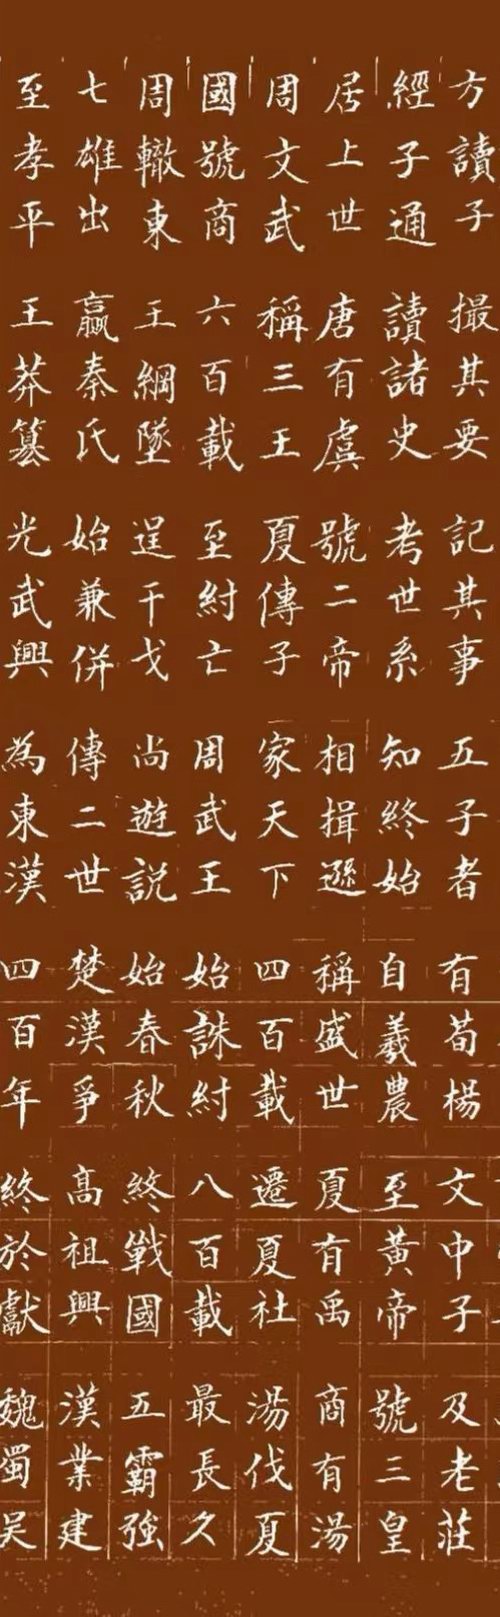 方讀子 撮其要 記其事 五子者 有荀楊 文中子 及老莊
經子通 讀諸史 考世系 知終始 自羲農 至黃帝 號三皇
居上世 唐有虞 號二帝 相揖遜 稱盛世 夏有禹 商有湯
周文武 稱三王 夏傳子 家天下 四百載 遷夏社 湯伐夏
國號商 六百載 至紂亡 周武王 始誅紂 八百載 最長久
周轍東 王綱墜 逞干戈 尚遊説 始春秋 終戰國 五霸強
七雄出 嬴秦氏 始兼併 傳二世 楚漢爭 高祖興 漢業建
至孝平 王莽篡 光武興 為東漢 四百年 終於獻 魏蜀吳